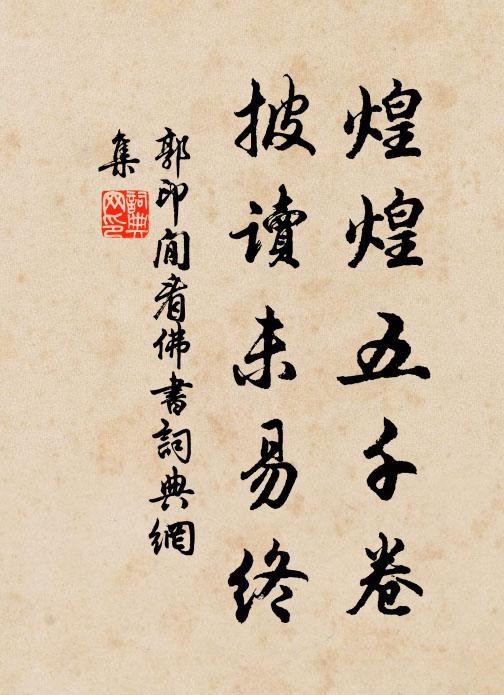 煌煌五千卷
披讀未易終
郭印閒看佛書詞典網
集
詞典
网印